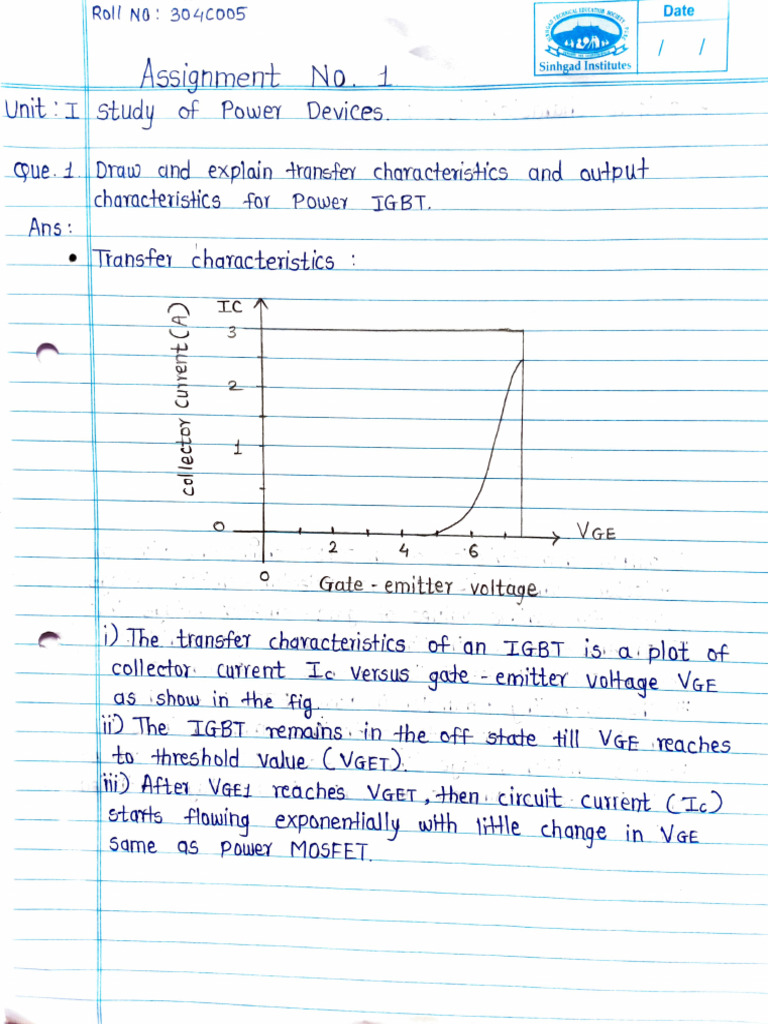 Roll No: 304C005
Date
/ /
Sinhgad Institutes
Assignment No. 1
Unit: I Study of Power Devices.
Que.1. Draw and explain transfer characteristics and output
characteristics for Power IGBT.
Ans:
• Transfer characteristics :
IC
3
2
1
0
collector current (A)
VGE
2 4 6
0
Gate - emitter voltage.
i) The transfer characteristics of an IGBT is a plot of
collector current Ic versus gate - emitter voltage VGE
as show in the fig.
ii) The IGBT remains in the off state till VGE reaches
to threshold value (VGET).
iii) After VGE1 reaches VGET, then circuit current (Ic)
starts flowing exponentially with little change in VGE
same as power MOSFET.